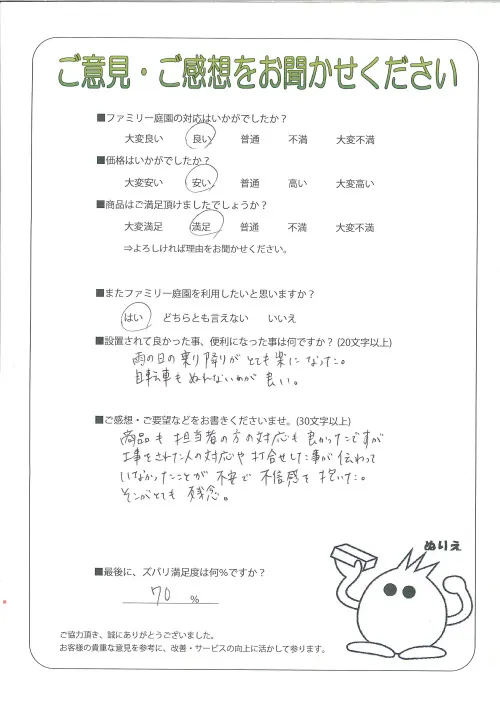 ご意見・ご感想をお聞かせください
■ファミリー庭園の対応はいかがでしたか？
大変良い 良い 普通 不満 大変不満
■価格はいかがでしたか？
大変安い 安い 普通 高い 大変高い
■商品はご満足頂けましたでしょうか？
大変満足 満足 普通 不満 大変不満
⇒よろしければ理由をお聞かせください。
■またファミリー庭園を利用したいと思いますか？
はい どちらとも言えない いいえ
■設置されて良かった事、便利になった事は何ですか？(20文字以上)
雨の日の乗り降りがとても楽になった。
自転車もぬれないのが良い。
■ご感想・ご要望などをお書きくださいませ。(30文字以上)
商品も担当者の方の対応も良かったですが
工事をされた人の対応や打合せした事が伝わって
いなかったことが不安で不信感を抱いた。
そこがとても残念。
ぬりえ
■最後に、ズバリ満足度は何％ですか？
70 %
ご協力頂き、誠にありがとうございました。
お客様の貴重な意見を参考に、改善・サービスの向上に活かして参ります。